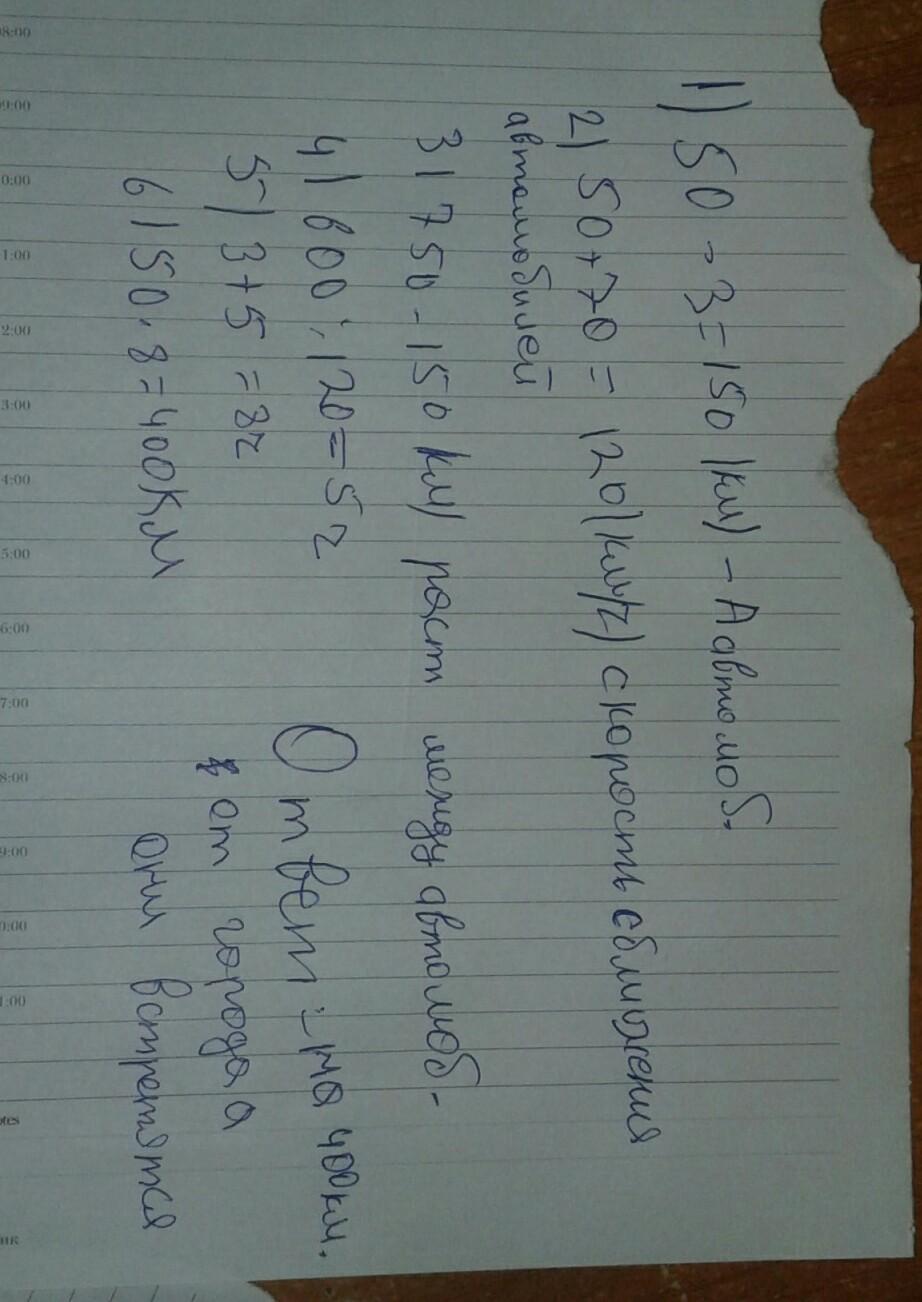 1) 50 - 3 = 150 (км) - А автомоб.
2) 50 + 70 = 120 (км/ч) скорость сближения
автомобилей
3) 750 - 150 км) расст между автомоб -
4) 600 : 120 = 5 ч
5) 3 + 5 = 8ч
6) 50 . 8 = 400км
Ответ :- на 400км.
от города а
они встретятся
8:00
09:00
0:00
1:00
2:00
3:00
4:00
5:00
6:00
7:00
8:00
9:00
0:00
1:00
otes